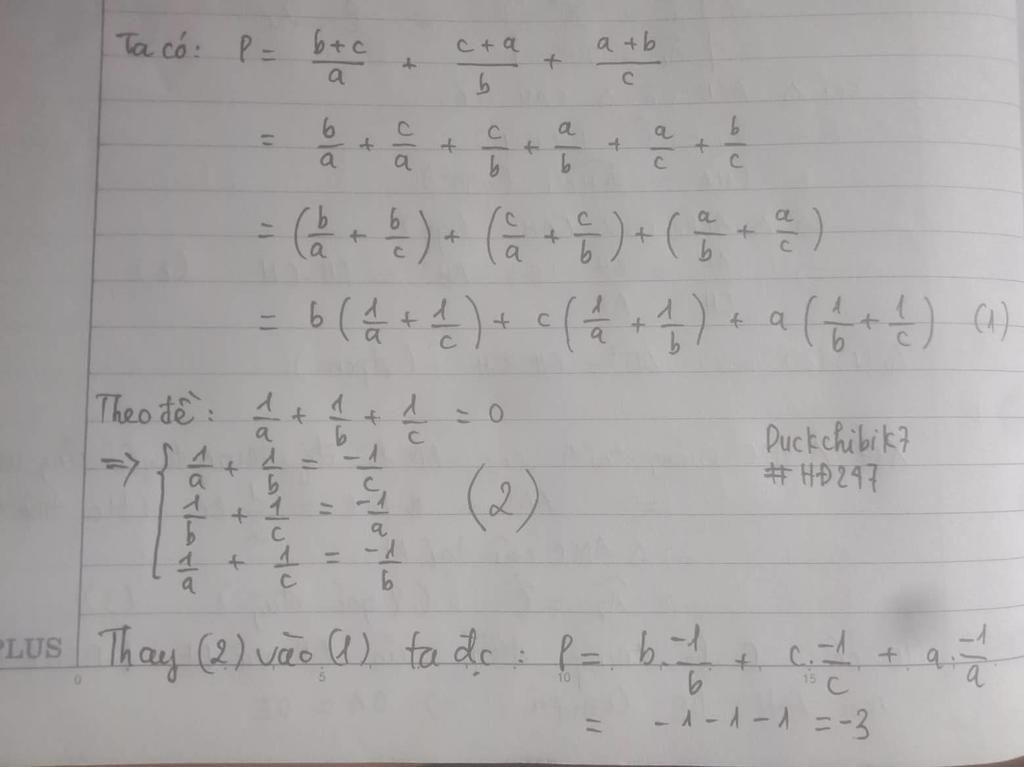 Ta có: P = b+c/a + c+a/b + a+b/c
= b/a + c/a + c/b + a/b + a/c + b/c
= (b/a + b/c) + (c/a + c/b) + (a/b + a/c)
= b(1/a + 1/c) + c(1/a + 1/b) + a(1/b + 1/c) (1)
Theo đề: 1/a + 1/b + 1/c = 0
=> { 1/a + 1/b = -1/c
1/b + 1/c = -1/a (2)
1/a + 1/c = -1/b
Duckchibik7
# HĐ247
Thay (2) vào (1) ta đc: P = b.-1/b + c.-1/c + a.-1/a
= -1-1-1 = -3
PLUS
0 5 10 15